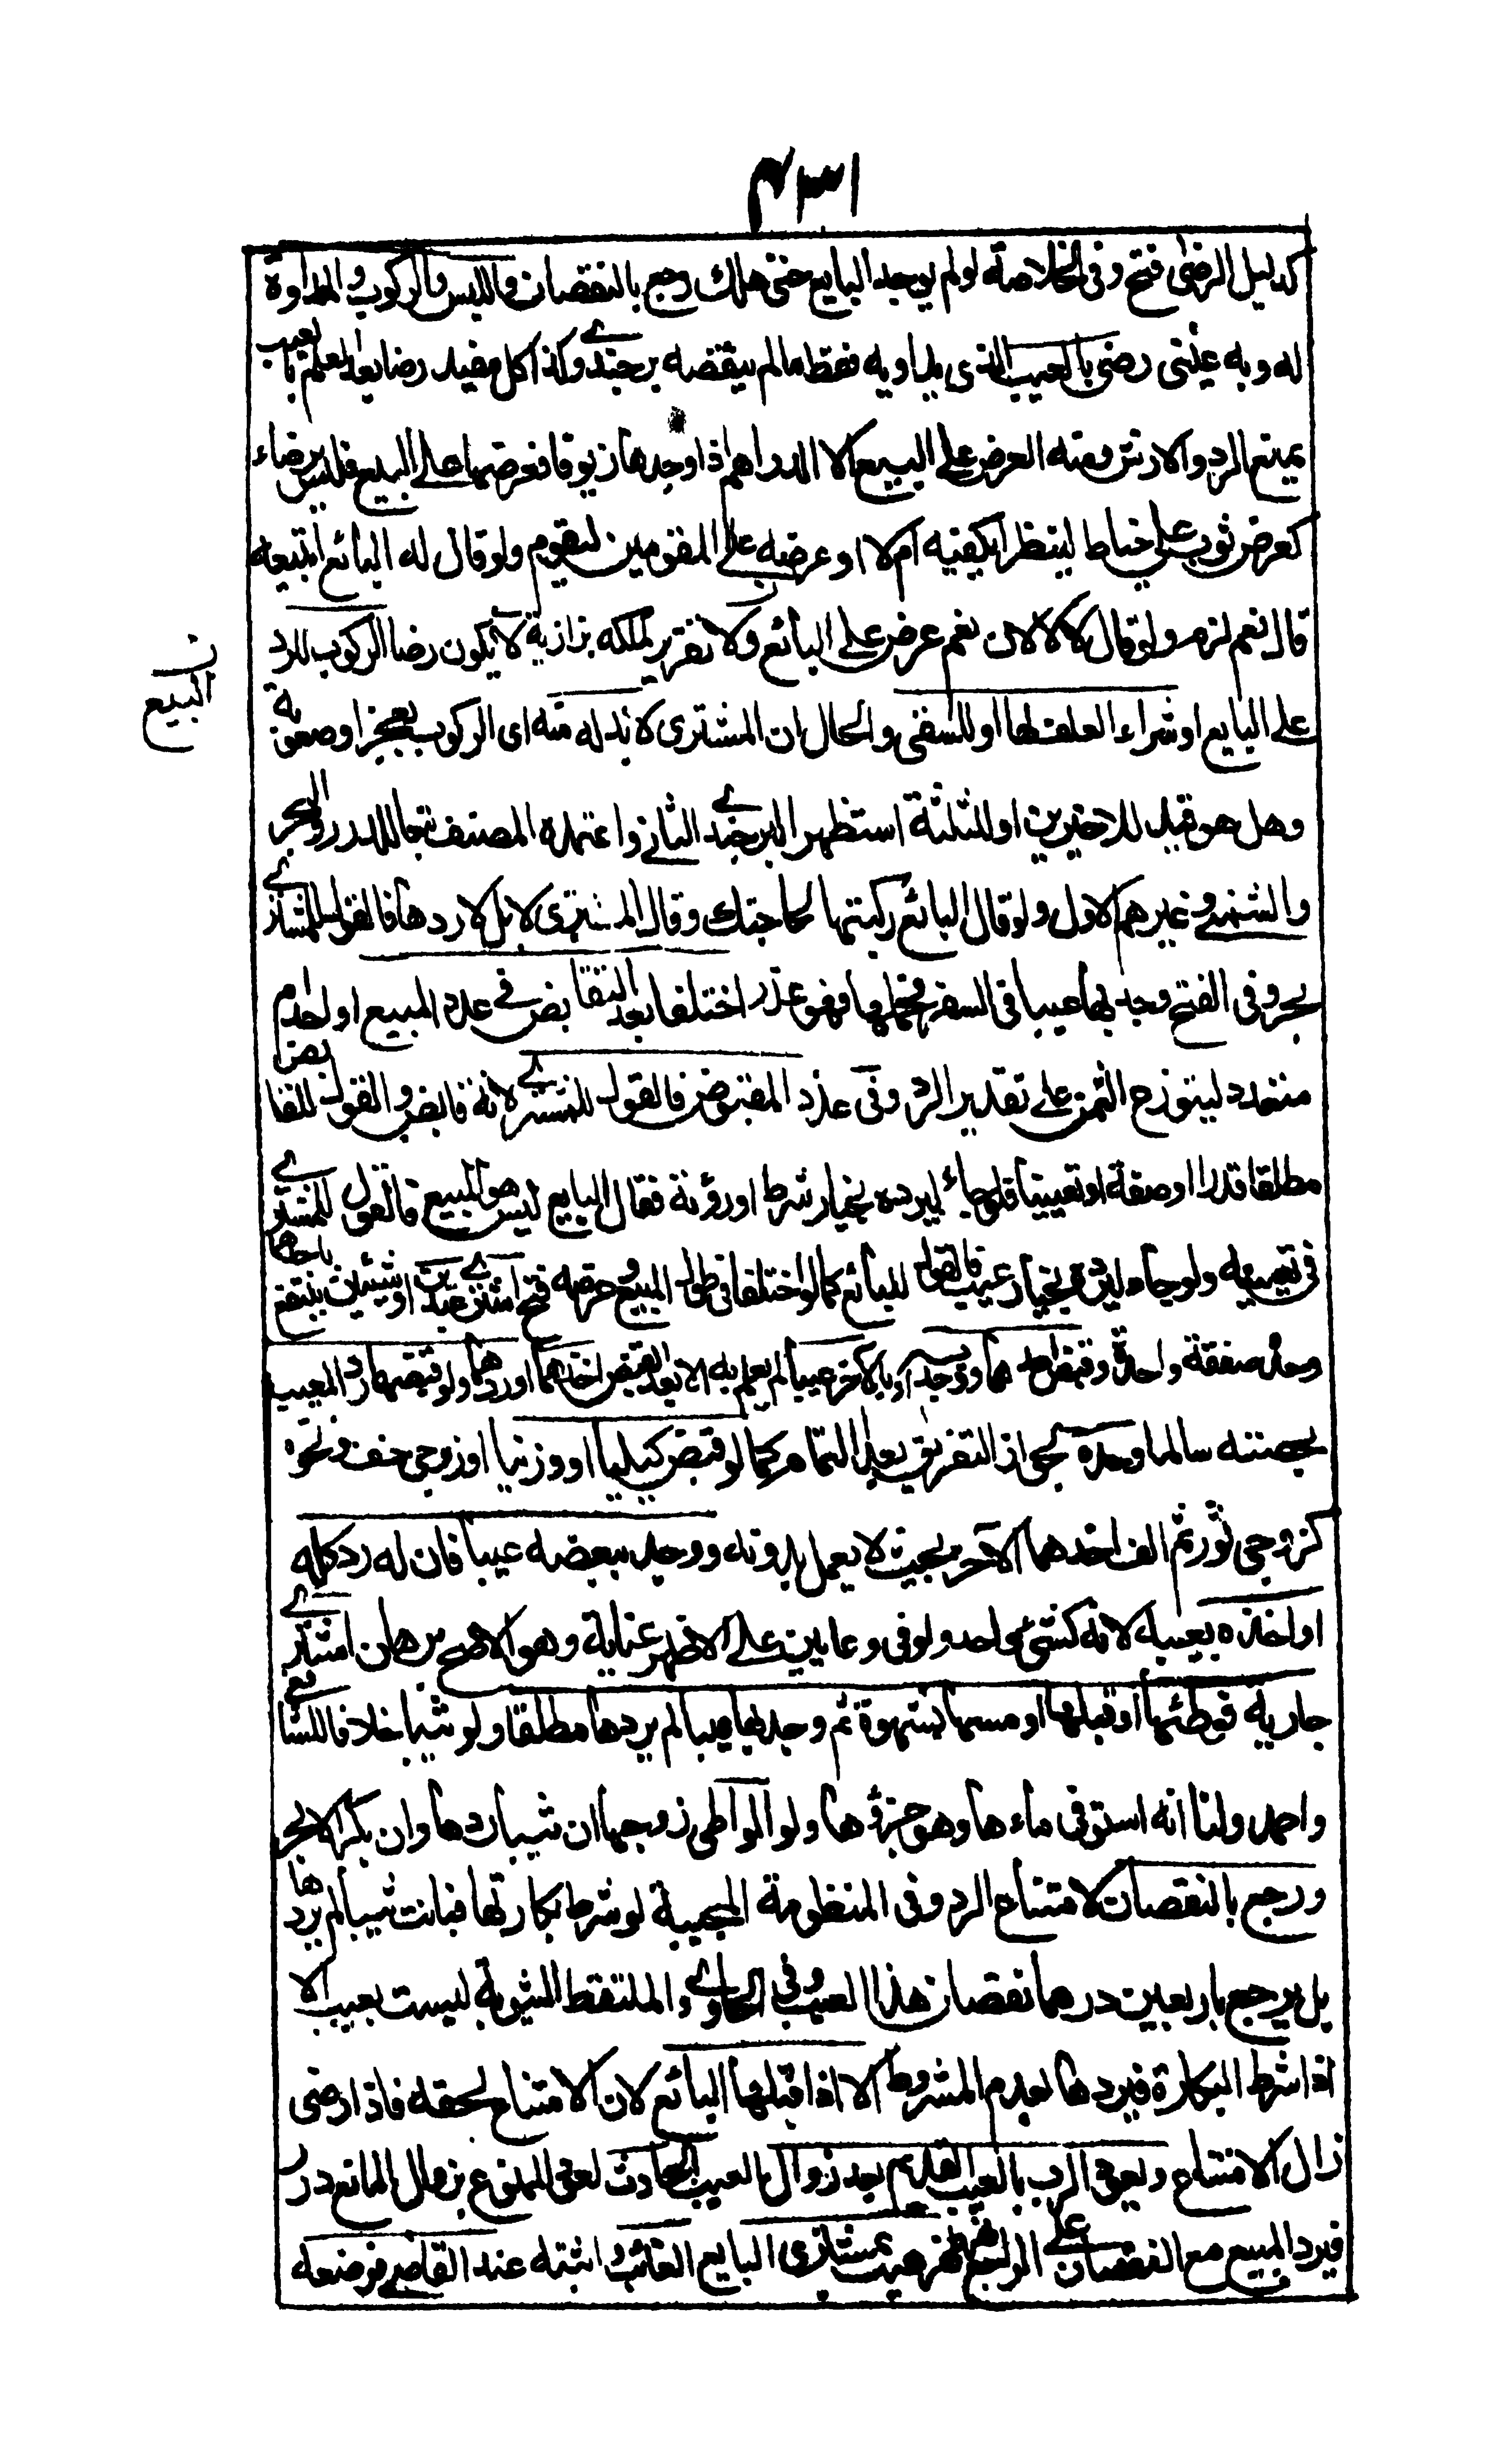 ٤٣١
كدليل الرضى فتح وفى الخلاصة لو لم يوجد البايع حتى هلك رجع بالنقصان واللبس والركوب والمداوة
له وبه عينى رضى بالعيب الذى يداويه فقط ما لم ينقصه برجندے وكذا كل مفيد رضا بعد العلم بالعيب
يمنع الرد والارش ومنه العرض على البيع الا الدراهم اذا وجدها زيوفا فعرضها على البيع فليس برضاء
كعرض ثوب على خياط لينظر ايكفيه ام لا او عرضه على المقومين ليقوم ولو قال له البائع اتبيعه
قال نعم لزم ولو قال لا لا لان نعم عرض على البائع ولا تقرير لملكه بزازية لا يكون رضا الركوب للرد
ن
البيع
على البايع او شراء العلف لها او للسقى والحال ان المشترى لا بد له منه اى الركوب بعجز او صعوبة
وهل هو قيد للاخيرين او للثلثة استظهر البرجندے الثانى واعتمده المصنف تبعا للدرر والبحر
والشمنى وغيرهم الاول ولو قال البائع ركبتها لحاجتك وقال المشترى لا بل لاردها فالقول للمشترے
بحر وفى الفتح وجد بها عيبا فى السفر فحملها فهو عذر اختلفا بعد التقابض فى عدد المبيع او احدام
متعدد ليتوزع الثمن على تقدير الرد وفى عدد المقبوض فالقول للمشترے لانه قابض والقول للقابض
مطلقا قدرا او صفة او تعيينا فلو جاء ليرده بخيار شرط او رؤية فقال البايع ليس هو المبيع فالقول للمشترے
فى تعيينه ولو جاء ليرده بخيار عيب فالقول للبائع كما لو اختلفا فى طول المبيع وعرضه فتح اشترے عبدين او شيئين ينتفع باحدهما
وحده صفقة واحدة وقبض احدهما ووجد به او بالآخر عيبا لم يعلم به الا بعد القبض اخذهما او ردهما ولو قبضهما رد المعيب
بحصته سالما وحده لجواز التفريق بعد التمام كما لو قبض كيليا او وزنيا او زوجى خف ونحوه
كزوجى ثور ثم الف احدهما الآخر بحيث لا يعمل بدونه ووجد ببعضه عيبا فان له رد كله
او اخذه بعيبه لانه كشئ واحد ولو فى وعايين على الاظهر عناية وهو الاصح برهان اشترے
جارية فوطئها او قبلها او مسها بشهوة ثم وجد بها عيبا لم يردها مطلقا ولو ثيبا خلافا للشافعے
واحمد ولنا انه استوفى ماءها وهو جزؤها ولو الواطى زوجها ان ثيبا ردها وان بكرا لا بحر
ورجع بالنقصان لامتناع الرد وفى المنظومة المحبية لو شرط بكارتها فبانت ثيبا لم يردها
بل يرجع باربعين درهما نقصان هذا العيب وفى الحاوے والملتقط الثيوبة ليست بعيب الا
اذا شرط البكارة فيردها لعدم المشروط الا اذا قبلها البائع لان الامتناع لحقه فاذا رضى
زال الامتناع ويعود الرد بالعيب القديم بعد زوال العيب الحادث لعود الممنوع بزوال المانع درر
فيرد المبيع مع النقصان على الراجح نهر ظهر عيب بمشترى البايع الغائب واثبته عند القاضے فوضعه